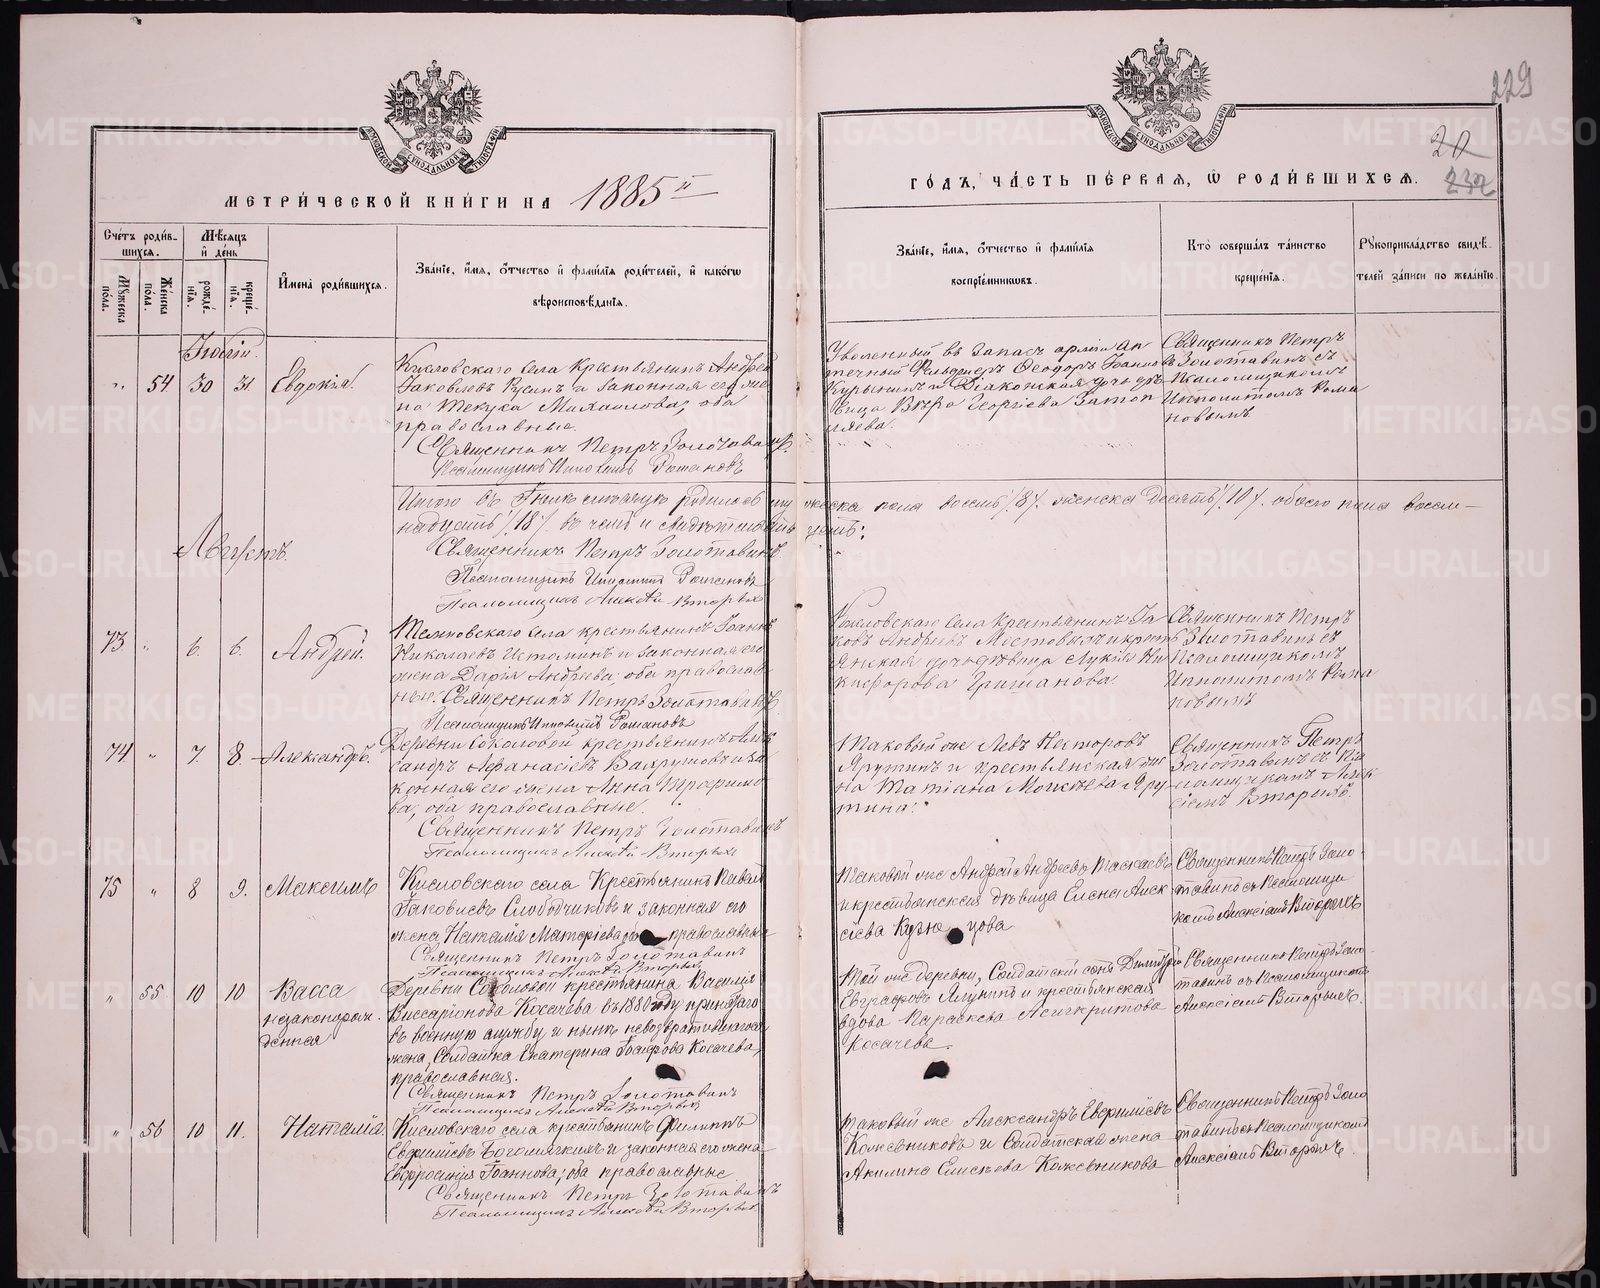 229
20
232
МОСКОВСКОЙ СУНОДАЛЬНОЙ ТИПОГРАФІИ
МОСКОВСКОЙ СУНОДАЛЬНОЙ ТИПОГРАФІИ
МЕТРИ́ЧЕСКОЙ КНИ́ГИ НА 1885й
ГО́ДЪ, ЧА́СТЬ ПЕ́РВАЯ, Ѡ РОДИ́ВШИХСЯ.
Счетъ роди́вшихся.
Мужеска пола.
Же́нска пола.
Мѣсяцъ и день
рожде́нія.
креще́нія.
Имена роди́вшихся.
Зва́ніе, и́мя, о́тчество и фами́лія роди́телей, и како́гѡ
вѣроисповѣ́данія.
Зва́ніе, и́мя, о́тчество и фами́лія
воспріе́мниковъ.
Кто́ соверша́лъ та́инство
креще́нія.
Рукоприкла́дство свидѣ́телей за́писи по жела́нію.
Іюль.
54 30 31 Евдокія.
Кисловскаго села крестьянинъ Андрей
Іаковлевъ Русинъ и законная его же
на Михаилова, оба
православные.
Священникъ Петръ Золотавинъ.
Псаломщикъ Ипполитъ Романовъ
Уволенный въ запасъ арміи ап
течный фельдшеръ Ѳеодоръ Іоанновъ
и Діаконская дочь дѣ
вица Вѣра Георгіева Затоп
ляева.
Священникъ Петръ
Золотавинъ съ
Псаломщикомъ
Ипполитомъ Рома
новымъ.
Итого въ Іюлѣ мѣсяцѣ родилось му
жеска пола восемь /8/. женска десять /10/. обоего пола восем—
надцать /18/ въ чемъ и свидѣтельствуемъ:
Священникъ Петръ Золотавинъ
Псаломщикъ Ипполитъ Романовъ
Псаломщикъ Алексѣй Вторыхъ
Августъ.
73 6. 6. Андрей.
крестьянинъ Іоаннъ
Николаевъ Истоминъ и законная его
жена Дарія Андреева, оба православ
ные. Священникъ Петръ Золотавинъ
Псаломщикъ Ипполитъ Романовъ
Кисловскаго села крестьянинъ Іа
ковъ Андреевъ и кресть
янская дочь дѣвица Лукія Ни
кифорова
Священникъ Петръ
Золотавинъ съ
Псаломщикомъ
Ипполитомъ Рома
новымъ
74 7. 8. Александръ.
Деревни Соколовой крестьянинъ Алек
сандръ Аѳанасіевъ и за
конная его жена Анна Трофимо
ва, оба православные.
Священникъ Петръ Золотавинъ
Псаломщикъ Алексѣй Вторыхъ
Таковый же Левъ Несторовъ
Ярутинъ и крестьянская же
на Татіана Моисеева Яру
тина.
Священникъ Петръ
Золотавинъ съ Пса
ломщикомъ Алек
сіемъ Вторыхъ.
75 8 9. Максимъ
Кисловскаго села Крестьянинъ Павелъ
Іаковлевъ Слободчиковъ и законная его
жена Наталія православные
Священникъ Петръ Золотавинъ
Псаломщикъ Алексѣй Вторыхъ
Таковый же Андрей Андреевъ
и крестьянская дѣвица Елена Алек
сіева Кузнецова
Священникъ Петръ Золо
тавинъ съ Псаломщи
комъ Алексіемъ Вторыхъ
55 10 10 Васса
незаконорож
денная
Деревни Соколовой крестьянина Василія
Виссаріонова Косачева въ 1880 году принятаго
въ военную службу и нынѣ невозвратившагося
жена, Солдатка Екатерина Косачева,
православная.
Священникъ Петръ Золотавинъ
Псаломщикъ Алексѣй Вторыхъ
Той же деревни, Солдатскій сынъ Димитрій
Евграфовъ и крестьянская
вдова Параскева Асигкритова
Косачева.
Священникъ Петръ Золо
тавинъ съ Псаломщикомъ
Алексіемъ Вторыхъ.
56 10 11. Наталія.
Кисловскаго села крестьянинъ Филиппъ
Евфиміевъ Богомягкихъ и законная его жена
Евфросинія Іоаннова, оба православные
Священникъ Петръ Золотавинъ
Псаломщикъ Алексѣй Вторыхъ
Таковый же Александръ Евфиміевъ
Кожевниковъ и Солдатская жена
Акилина Елисеева Кожевникова
Священникъ Петръ Золо
тавинъ съ Псаломщикомъ
Алексіемъ Вторыхъ.
METRIKI.GASO-URAL.RU